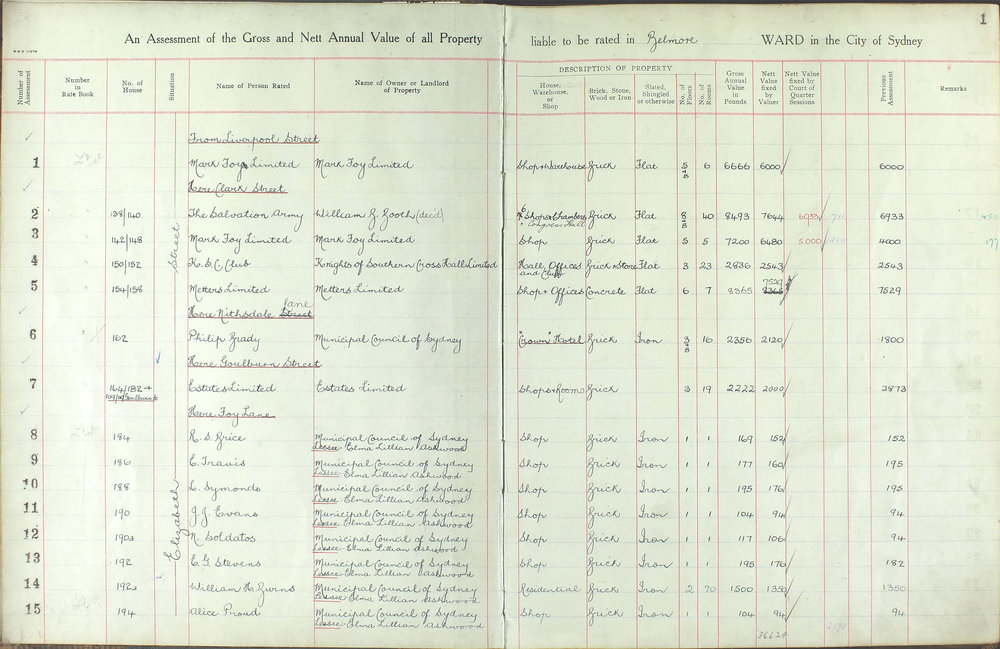 1
S.M.C. 11574
An Assessment of the Gross and Nett Annual Value of all Property liable to be rated in Belmore WARD in the City of Sydney
DESCRIPTION OF PROPERTY
Number of Assessment | Number in Rate Book | No. of House | Situation | Name of Person Rated | Name of Owner or Landlord of Property | House, Warehouse, or Shop | Brick, Stone, Wood or Iron | Slated, Shingled or otherwise | No. of Floors | No. of Rooms | Gross Annual Value in Pounds | Nett Value fixed by Valuer | Nett Value fixed by Court of Quarter Sessions | Previous Assessment | Remarks
Elizabeth Street
From Liverpool Street
1 Mark Foys Limited Mark Foy Limited Shop & Warehouse Brick Flat 5 & B 6 6666 6000 6000
Here Clark Street
2 138/140 The Salvation Army William B. Booth (dec'd) 6 Shops & Chambers & Congress Hall Brick Flat 8 & B 40 8493 7644 6033 6933
3 142/148 Mark Foy Limited Mark Foy Limited Shop Brick Flat 5 5 7200 6480 5.000 4000 177
4 150/152 K.S.C. Club Knights of Southern Cross Hall Limited Hall, Offices and Club Brick & Stone Flat 3 23 2836 2543 2543
5 154/158 Metters Limited Metters Limited Shop & Offices Concrete Flat 6 7 8365 7529 8365 7529
Here Nithsdale Street Lane
6 162 Philip Brady Municipal Council of Sydney "Crown" Hotel Brick Iron 3 & B 16 2356 2120 1800
Here Goulburn Street
7 164/182 & Goulburn St Estates Limited Estates Limited Shops & Rooms Brick 3 19 2222 2000 2873
Here Foy Lane
8 184 R. S. Brice Municipal Council of Sydney Shop Brick Iron 1 1 169 152 152
Lessee- Elma Lillian Ashwood
9 186 C. Travis Municipal Council of Sydney Shop Brick Iron 1 1 177 160 195
Lessee- Elma Lillian Ashwood
10 188 L. Symonds Municipal Council of Sydney Shop Brick Iron 1 1 195 176 195
Lessee- Elma Lillian Ashwood
11 190 J. J. Evans Municipal Council of Sydney Shop Brick Iron 1 1 104 94 94
Lessee- Elma Lillian Ashwood
12 190a N. Soldatos Municipal Council of Sydney Shop Brick Iron 1 1 117 106 94
Lessee- Elma Lillian Ashwood
13 192 E. G. Stevens Municipal Council of Sydney Shop Brick Iron 1 1 195 176 182
Lessee- Elma Lillian Ashwood
14 192a William H. Burns Municipal Council of Sydney Residential Brick Iron 2 70 1500 1350 1350
Lessee- Elma Lillian Ashwood
15 194 Alice Proud Municipal Council of Sydney Shop Brick Iron 1 1 104 94 94
Lessee- Elma Lillian Ashwood
36624